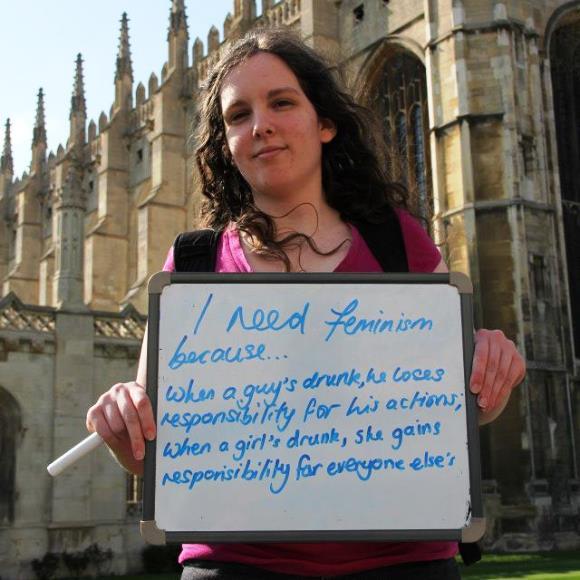 I need feminism
because...
When a guy's drunk, he loses
responsibility for his actions;
when a girl's drunk, she gains
responsibility for everyone else's